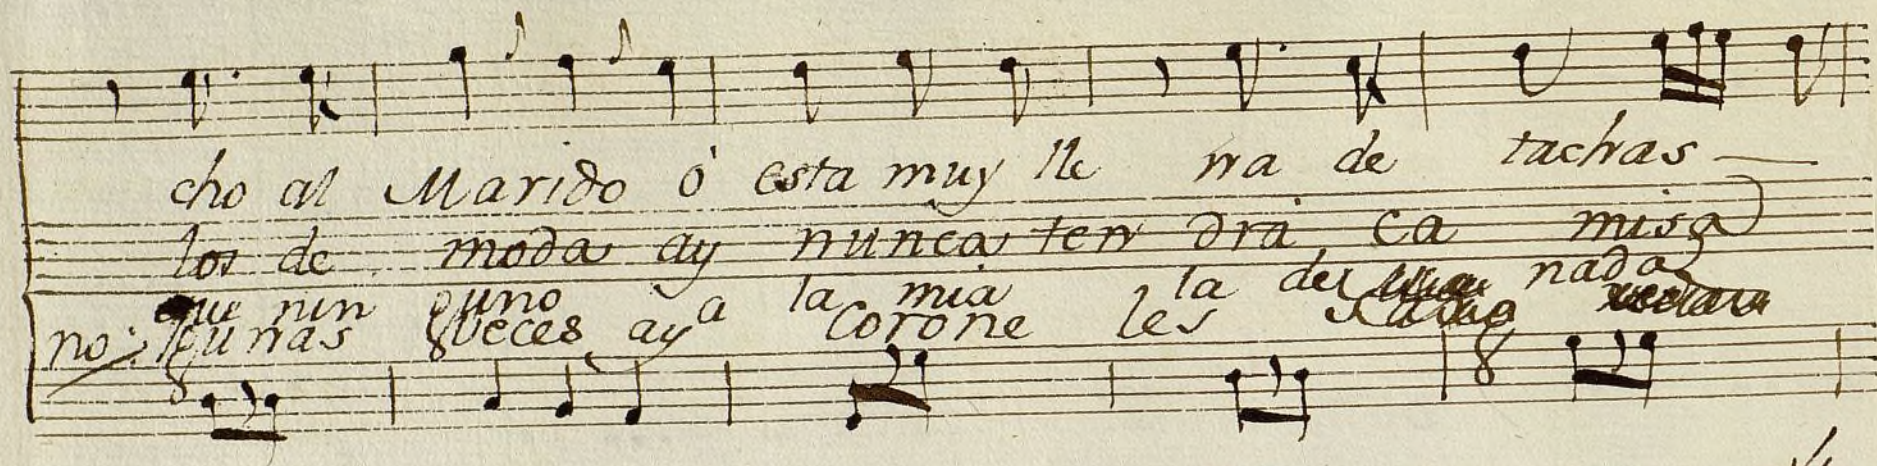 cho al Marido ó esta muy lle na de tachas
los de moda ay nunca ten drá ca misa
que nin guno a la mia la de nada
no gunas veces ay Corone les